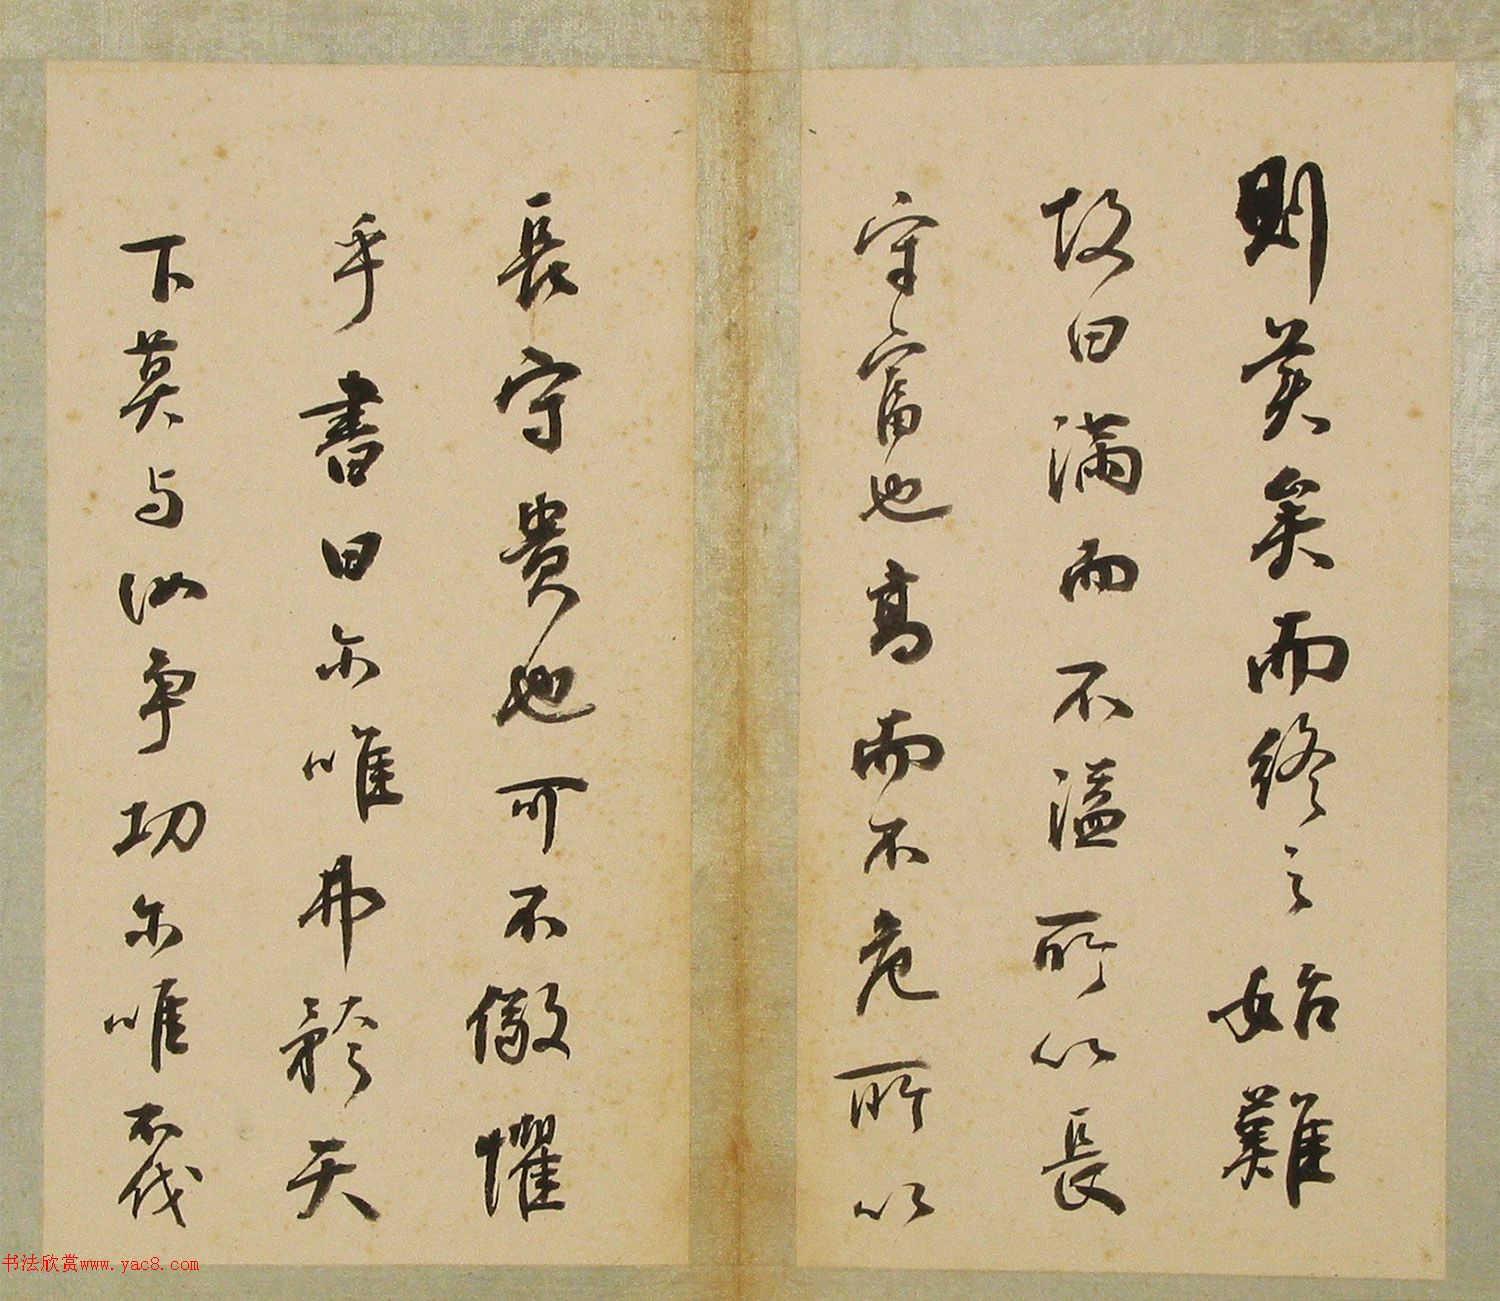 則美矣而終之始難
故曰滿而不溢所以長
守富也高而不危所以
長守貴也可不儆懼
乎書曰尒唯弗矜天
下莫与汝争功尒唯不伐
书法欣赏www.yac8.com